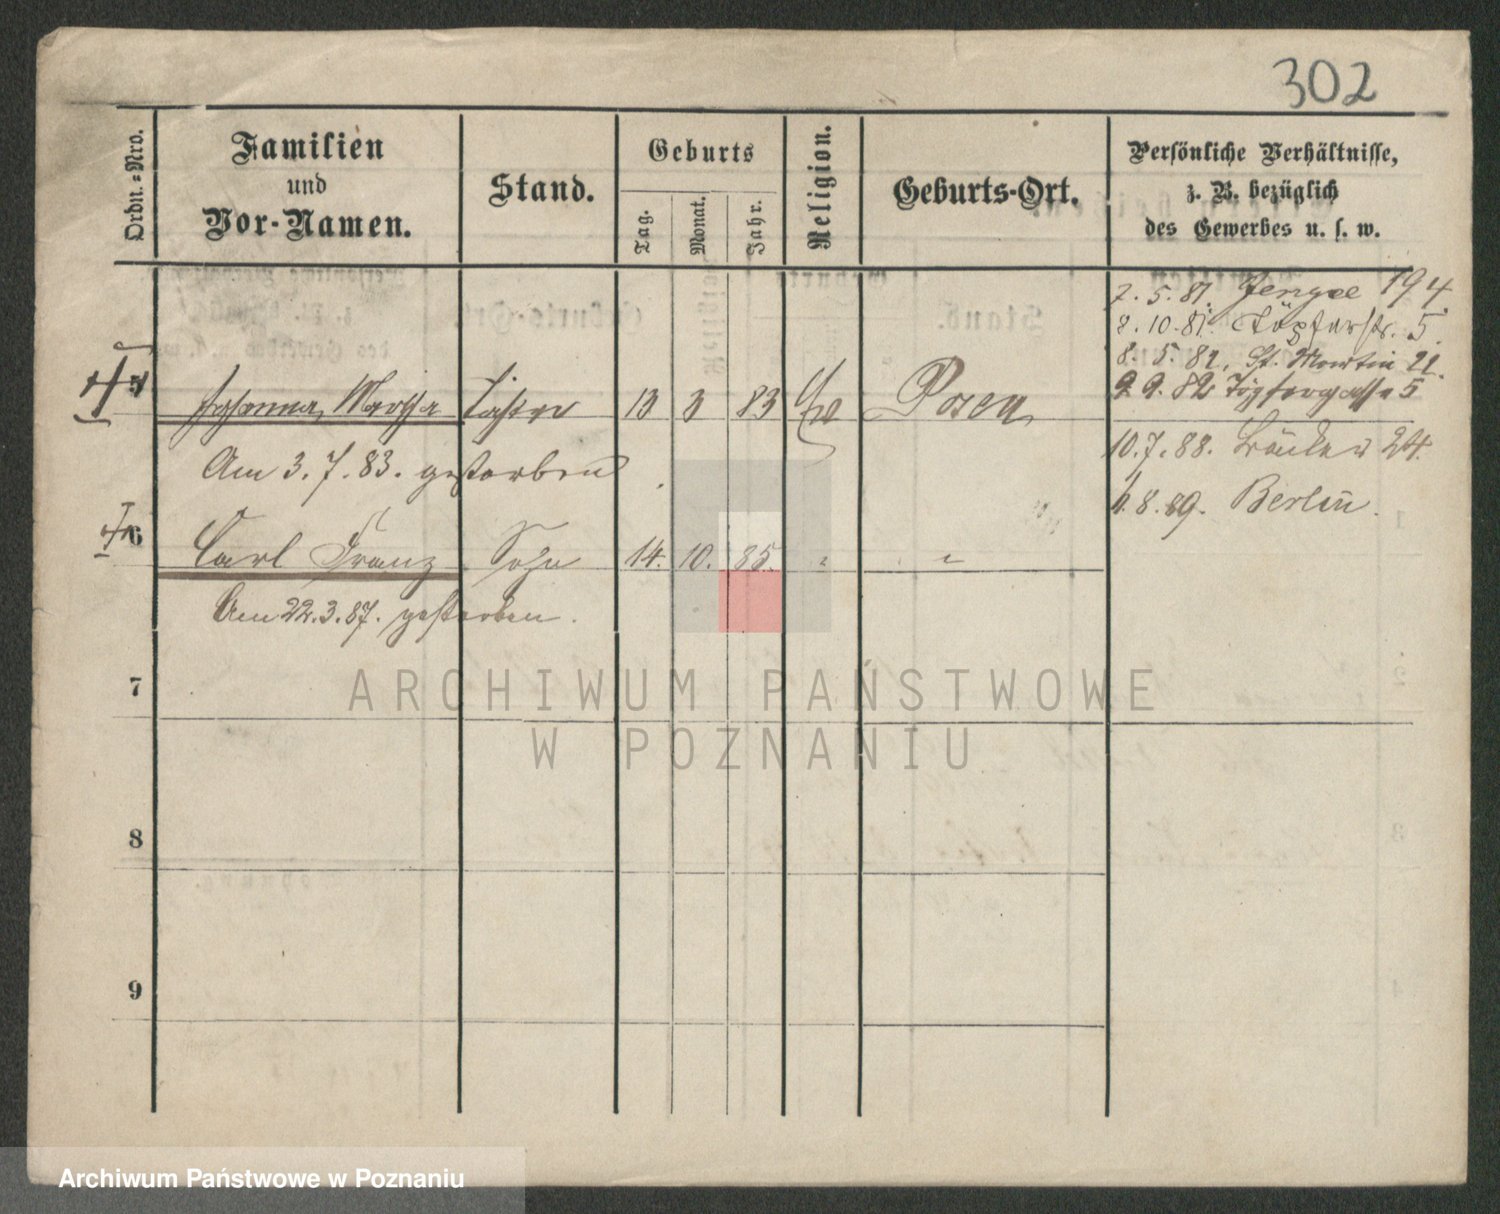 302
Ordn.-Nro.
Familien
und
Vor-Namen.
Stand.
Geburts
Tag.
Monat.
Jahr.
Religion.
Geburts-Ort.
Persönliche Verhältnisse,
z. B. bezüglich
des Gewerbes u. s. w.
7. 5. 81. Jerzyce 194
2. 10. 81. Töpferstr. 5.
8. 5. 82. St. Martin 21.
9. 9. 82 Töpfergasse 5
5 Johanna, Martha Tochter 13 3 83 Ev Posen
10. 7. 88. 24.
Am 3. 7. 83. gestorben.
8. 89. Berlin.
6 Carl Franz Sohn 14. 10. 85. " "
Am 22. 3. 87. gestorben.
7
ARCHIWUM PAŃSTWOWE
W POZNANIU
8
9
Archiwum Państwowe w Poznaniu